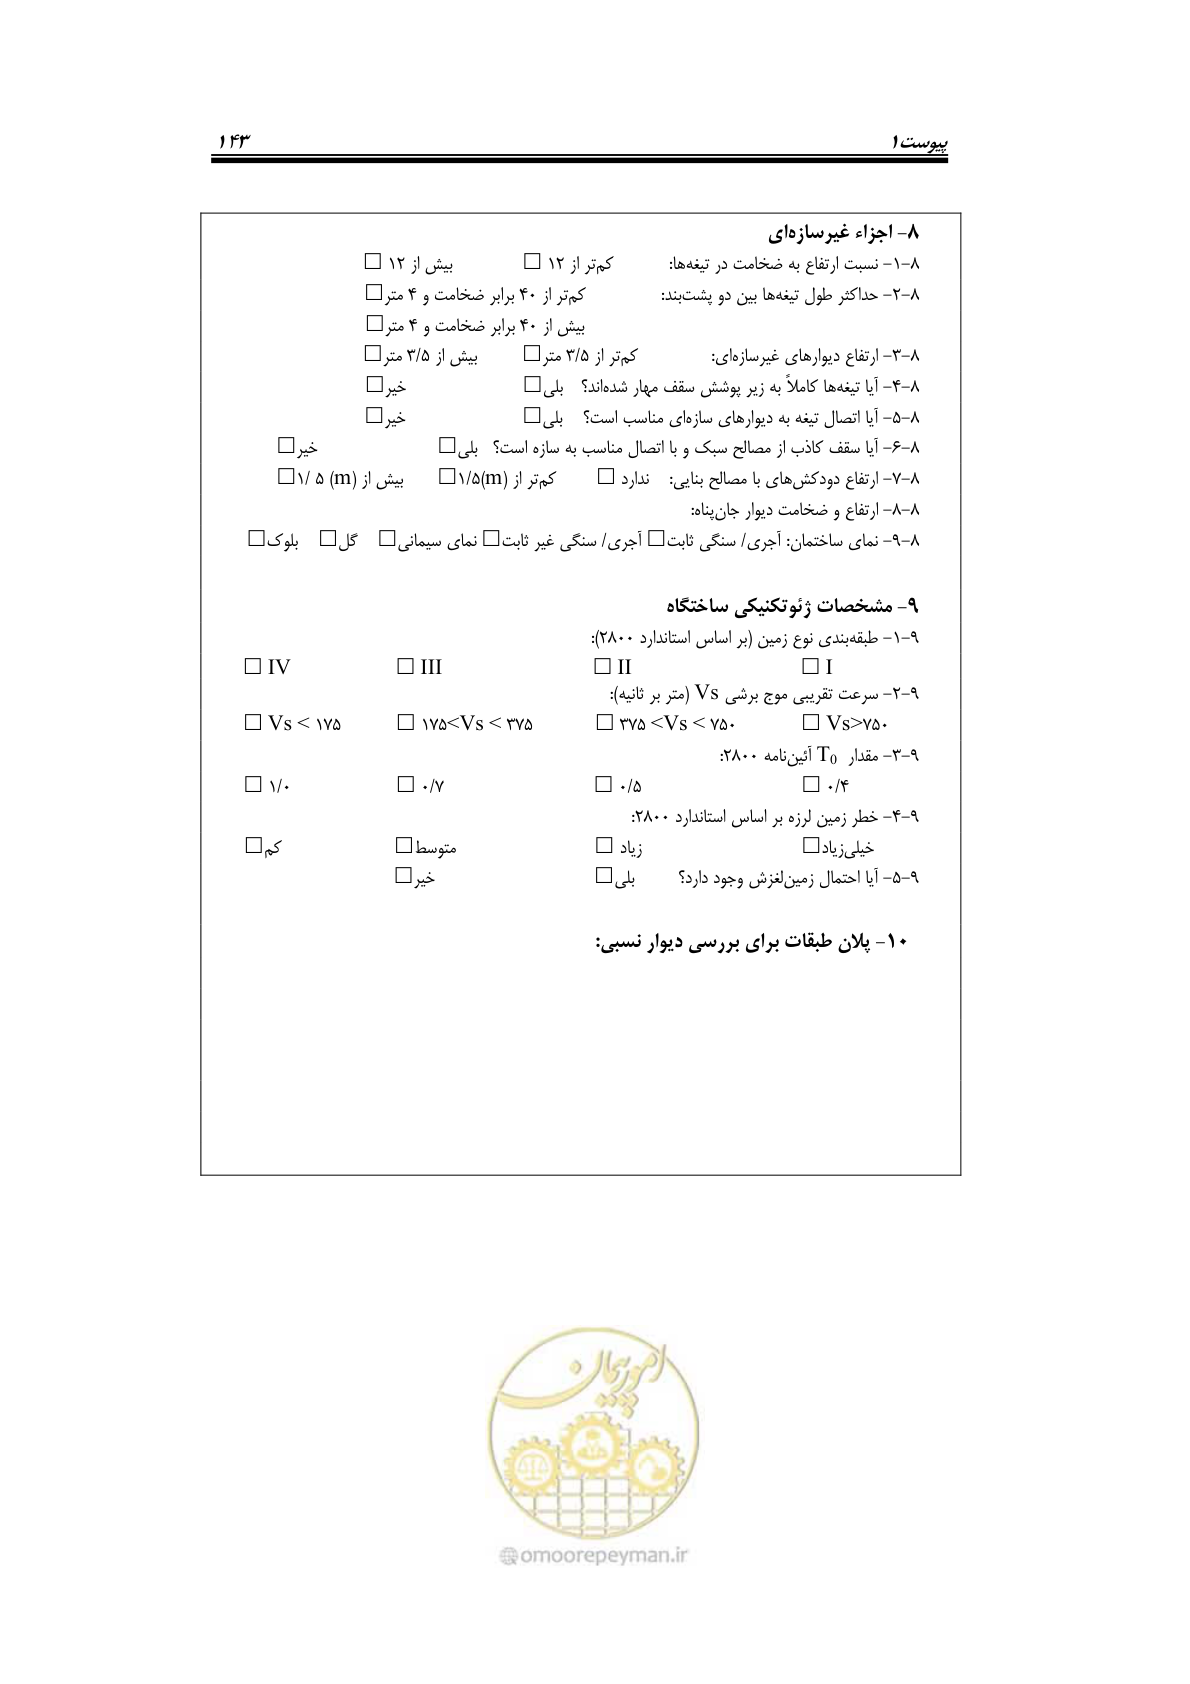 پیوست۱ ۱۴۳
۸- اجزاء غیرسازه‌ای
۸-۱- نسبت ارتفاع به ضخامت در تیغه‌ها: کم‌تر از ۱۲ □ بیش از ۱۲ □
۸-۲- حداکثر طول تیغه‌ها بین دو پشت‌بند: کم‌تر از ۴۰ برابر ضخامت و ۴ متر□
بیش از ۴۰ برابر ضخامت و ۴ متر□
۸-۳- ارتفاع دیوارهای غیرسازه‌ای: کم‌تر از ۳/۵ متر□ بیش از ۳/۵ متر□
۸-۴- آیا تیغه‌ها کاملاً به زیر پوشش سقف مهار شده‌اند؟ بلی□ خیر□
۸-۵- آیا اتصال تیغه به دیوارهای سازه‌ای مناسب است؟ بلی□ خیر□
۸-۶- آیا سقف کاذب از مصالح سبک و با اتصال مناسب به سازه است؟ بلی□ خیر□
۸-۷- ارتفاع دودکش‌های با مصالح بنایی: ندارد □ کم‌تر از (m)۱/۵□ بیش از (m) ۱/ ۵□
۸-۸- ارتفاع و ضخامت دیوار جان‌پناه:
۸-۹- نمای ساختمان: آجری/ سنگی ثابت□ آجری/ سنگی غیر ثابت□ نمای سیمانی□ گل□ بلوک□
۹- مشخصات ژئوتکنیکی ساختگاه
۹-۱- طبقه‌بندی نوع زمین (بر اساس استاندارد ۲۸۰۰):
□ I □ II □ III □ IV
۹-۲- سرعت تقریبی موج برشی Vs (متر بر ثانیه):
□ Vs>۷۵۰ □ ۳۷۵ <Vs < ۷۵۰ □ ۱۷۵<Vs < ۳۷۵ □ Vs < ۱۷۵
۹-۳- مقدار T0 آئین‌نامه ۲۸۰۰:
□ ۰/۴ □ ۰/۵ □ ۰/۷ □ ۱/۰
۹-۴- خطر زمین لرزه بر اساس استاندارد ۲۸۰۰:
خیلی‌زیاد□ زیاد □ متوسط□ کم□
۹-۵- آیا احتمال زمین‌لغزش وجود دارد؟ بلی□ خیر□
۱۰- پلان طبقات برای بررسی دیوار نسبی:
امور پیمان
@omoorepeyman.ir